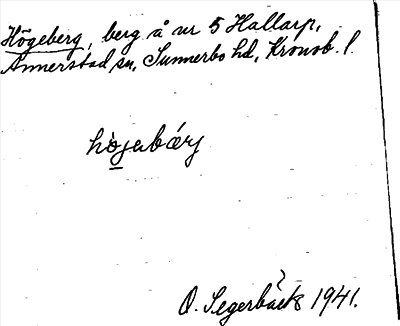 Högeberg, berg å nr 5 Hallarp,
Annerstad sn, Sunnerbo hd, Kronob. l.
högabärj
O. Segerbäck 1941.